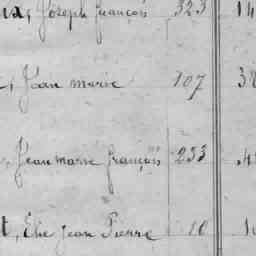 Joseph François 323 14
Jean Marie 107
Jean Marie François 233
Elie Jean Pierre 10